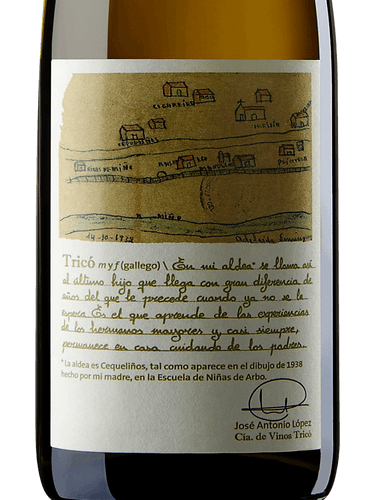 CEGARREIRA
IGLESIA
CEQUELIÑOS
CASAS DE MIÑO
R. MIÑO
14-10-1938
Tricó m y f (gallego) \ En mi aldea* se llama así
al último hijo que llega con gran diferencia de
años del que le precede cuando ya no se le
espera. Es el que aprende de las experiencias
de los hermanos mayores y casi siempre,
permanece en casa cuidando de los padres.
* La aldea es Cequeliños, tal como aparece en el dibujo de 1938
hecho por mi madre, en la Escuela de Niñas de Arbo.
José Antonio López
Cía. de Vinos Tricó